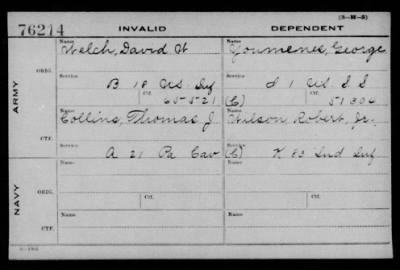 (3-H-3)
76214 INVALID DEPENDENT
ARMY
NAVY
ORIG.
CTF.
ORIG.
CTF.
Name Name
Welch, David W George
Service Service
B 18 US Inf I 1 US. S S
Ctf. Ctf.
65-5-21 (C) 51306
Name Name
Collins, Thomas J. Wilson, Robert, Jr.
Service Service
A 21 Pa Cav (C) K 83 Ind Inf
Name Name
Service Service
Ctf. Ctf.
Name Name
Service Service